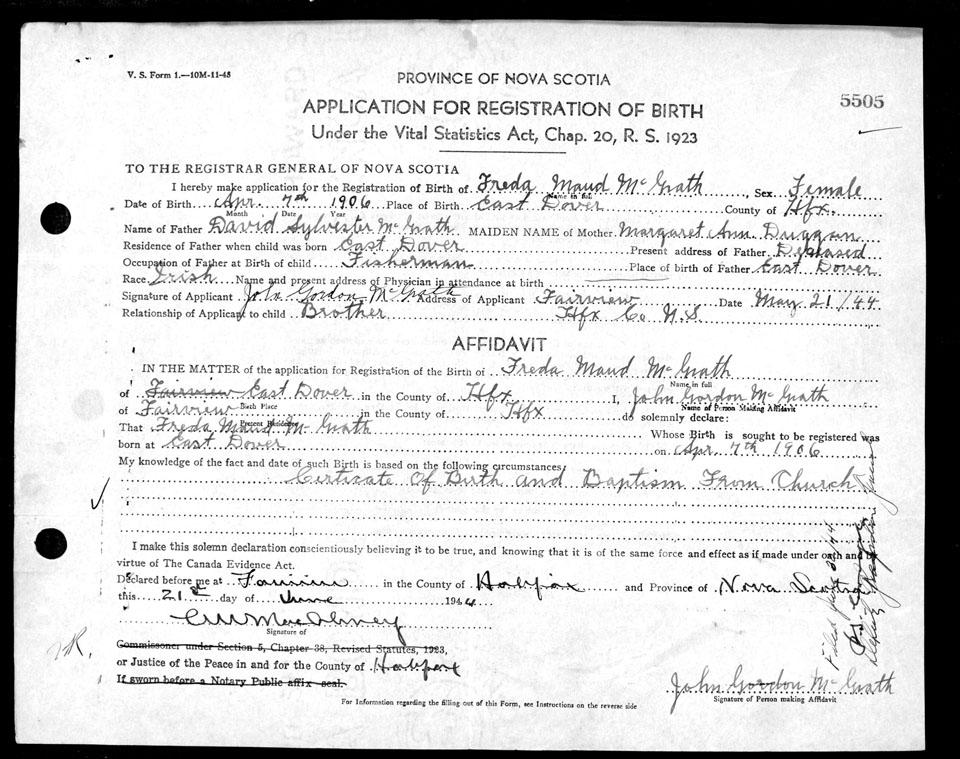 V. S. Form 1.—10M-11-43
PROVINCE OF NOVA SCOTIA
5505
APPLICATION FOR REGISTRATION OF BIRTH
Under the Vital Statistics Act, Chap. 20, R. S. 1923
TO THE REGISTRAR GENERAL OF NOVA SCOTIA
I hereby make application for the Registration of Birth of Freda Maud McGrath, Sex Female
Name in full
Date of Birth Apr. 7th 1906 Place of Birth East Dover County of Hfx.
Month Date Year
Name of Father David Sylvester McGrath MAIDEN NAME of Mother Margaret Ann Duggan
Residence of Father when child was born East Dover Present address of Father Deceased
Occupation of Father at Birth of child Fisherman Place of birth of Father East Dover
Race Irish Name and present address of Physician in attendance at birth
Signature of Applicant John Gordon McGrath Address of Applicant Fairview Date May 21/44
Relationship of Applicant to child Brother Hfx Co N.S
AFFIDAVIT
IN THE MATTER of the application for Registration of the Birth of Freda Maud McGrath
Name in full
of Fairview East Dover in the County of Hfx I, John Gordon McGrath
Birth Place Name of Person Making Affidavit
of Fairview in the County of Hfx do solemnly declare:
Present Residence
That Freda Maud McGrath Whose Birth is sought to be registered was
born at East Dover on Apr. 7th 1906
My knowledge of the fact and date of such Birth is based on the following circumstances/
Certicate Of Birth and Baptism From Church
I make this solemn declaration conscientiously believing it to be true, and knowing that it is of the same force and effect as if made under oath and by
virtue of The Canada Evidence Act.
Declared before me at Fairview in the County of Halifax and Province of Nova Scotia
this 21st day of June 1944
Signature of
Commissoner under Section 5, Chapter 38, Revised Statutes, 1923,
or Justice of the Peace in and for the County of Halifax
If sworn before a Notary Public affix seal.
John Gordon McGrath
Signature of Person making Affidavit
For Information regarding the filling out of this Form, see Instructions on the reverse side
Filed
Deputy Registrar General